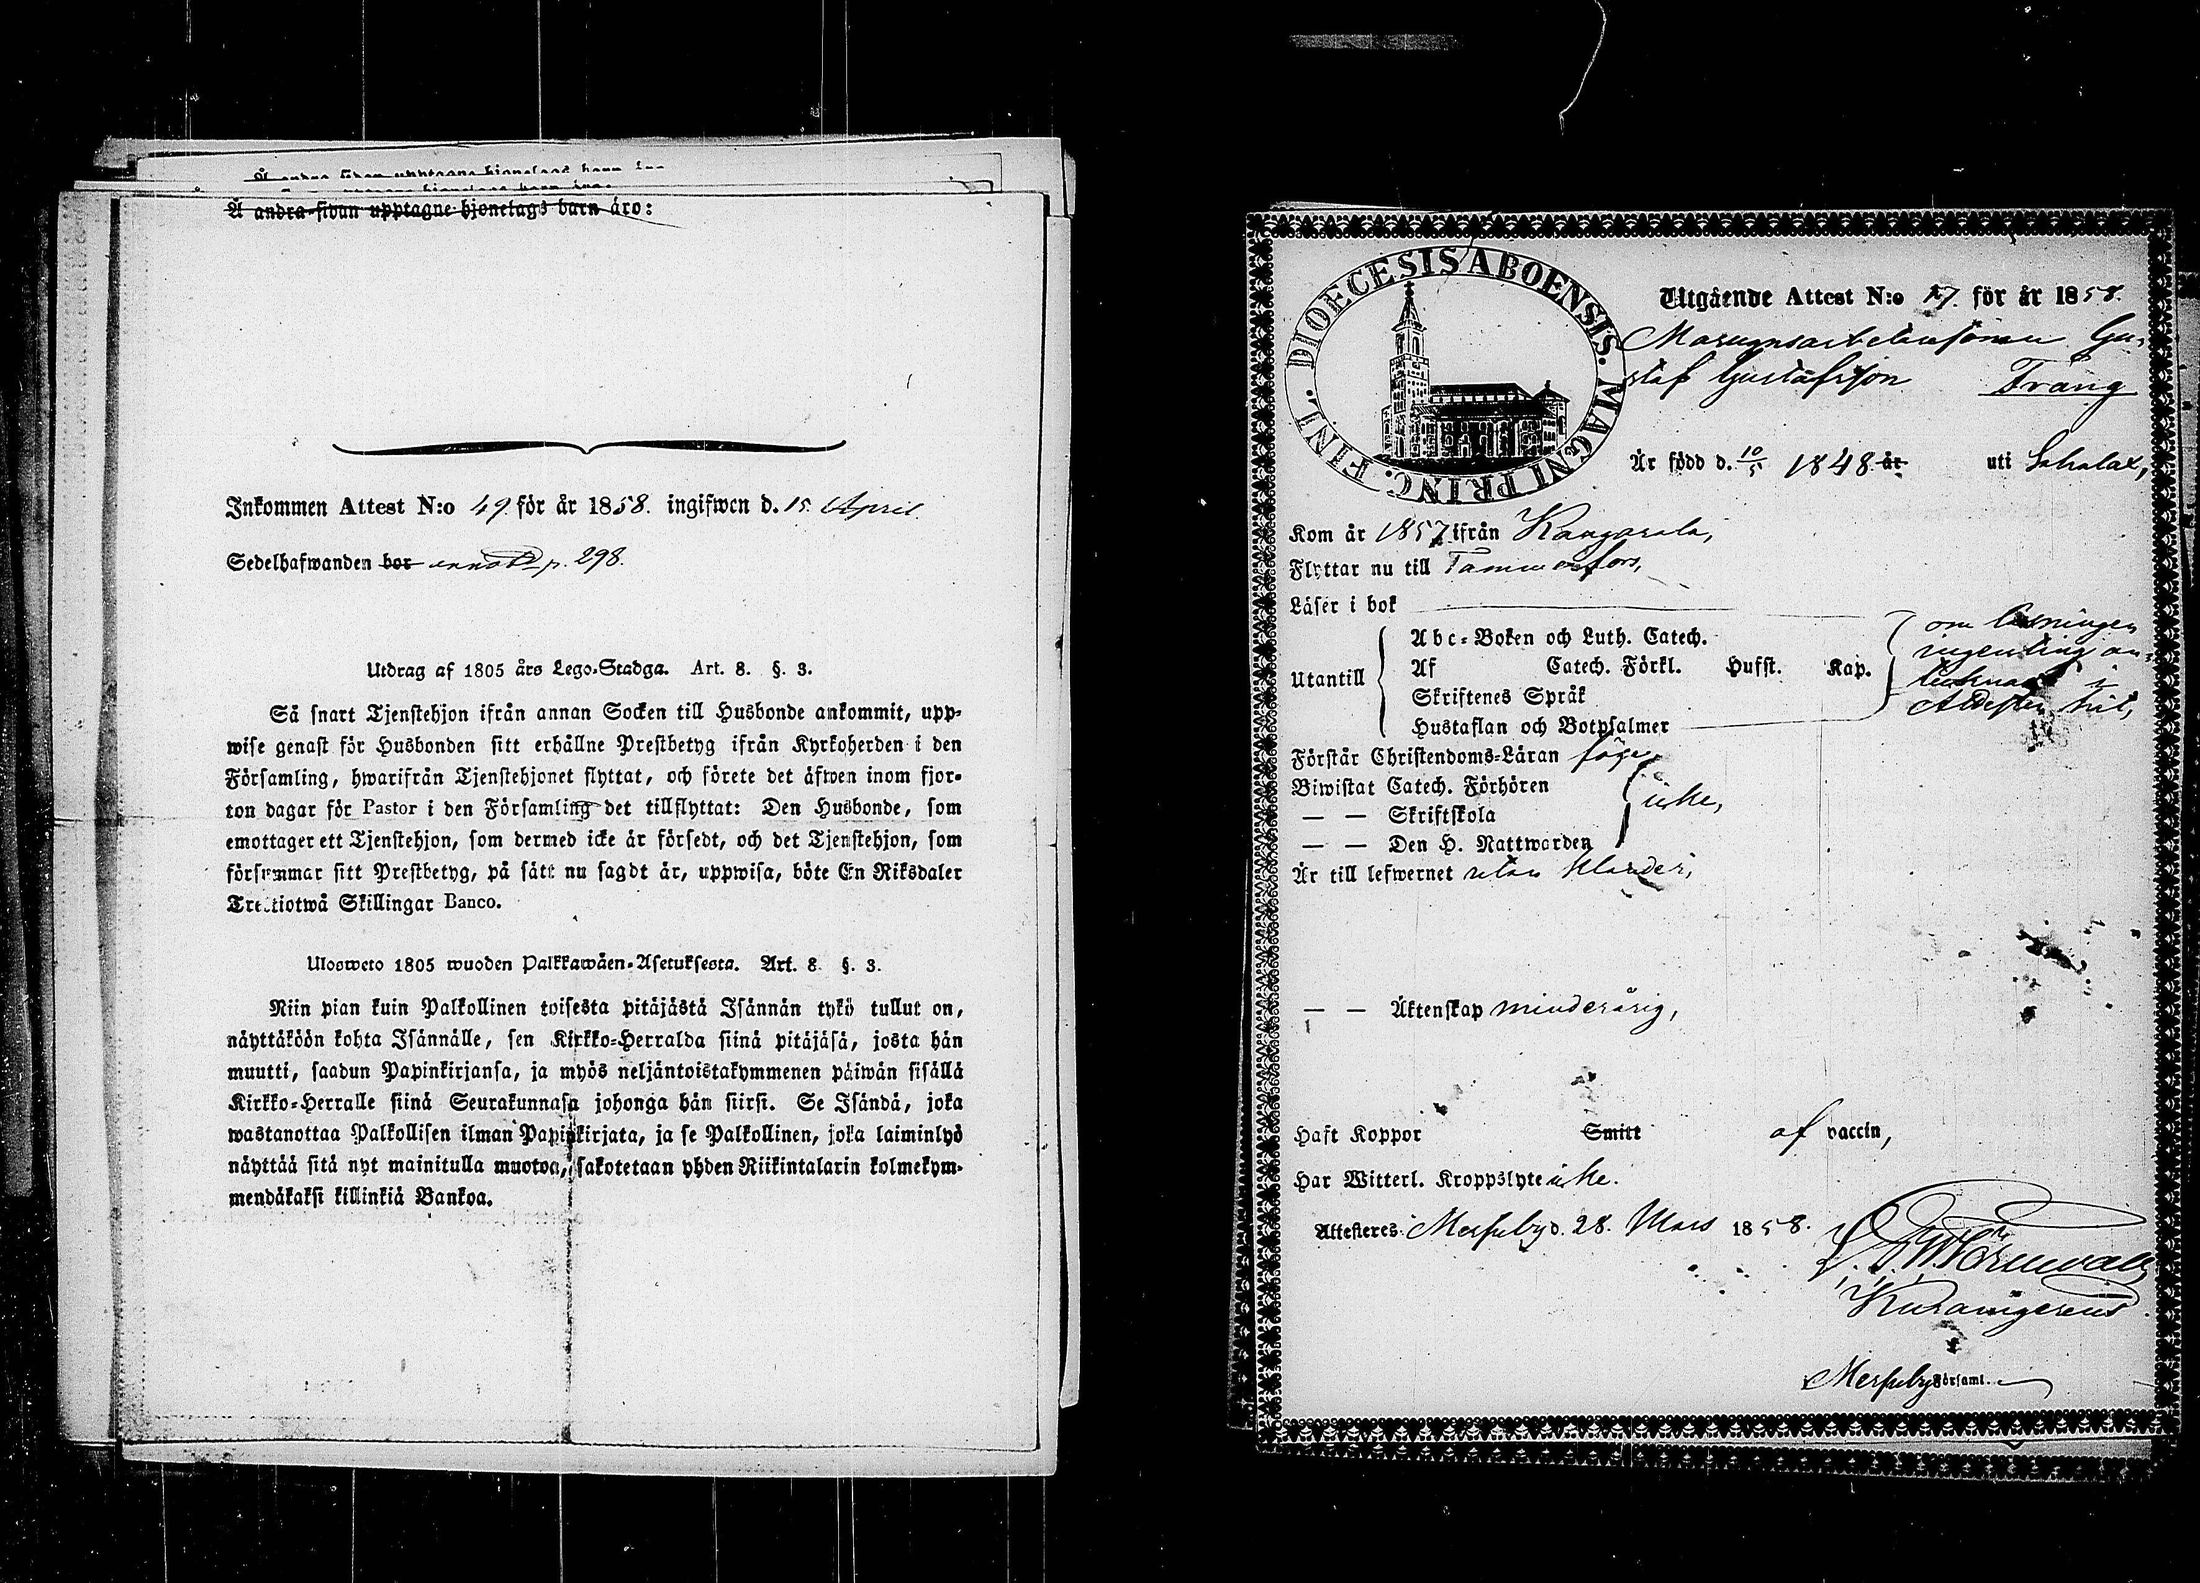 Å andra sidan upptagne hjonelags barn äro:
Inkommen Attest N:o 49 för år 1858. ingifwen d. 15 April.
Sedelhafwanden bor p. 298.
Utdrag af 1805 års Lego-Stadga. Art. 8. §. 3.
Så snart Tjenstehjon ifrån annan Socken till Husbonde ankommit, upp-
wise genast för Husbonden sitt erhållne Prestbetyg ifrån Kyrkoherden i den
Församling, hwarifrån Tjenstehjonet flyttat, och förete det äfwen inom fjor-
ton dagar för Pastor i den Församling det tillflyttat: Den Husbonde, som
emottager ett Tjenstehjon, som dermed icke är försedt, och det Tjenstehjon, som
försummar sitt Prestbetyg, på sätt nu sagdt är, uppwisa, böte En Riksdaler
Trettiotwå Skillingar Banco.
Ulosweto 1805 wuoden Palkkawäen-Asetuksesta. Art. 8. §. 3.
Niin pian kuin Palkollinen toisesta pitäjästä Isännän tykö tullut on,
näyttäköön kohta Isännälle, sen Kirkko-Herralda siinä pitäjäsä, josta hän
muutti, saadun Papinkirjansa, ja myös neljäntoistakymmenen päiwän sisällä
Kirkko-Herralle siinä Seurakunnasa johonga hän siirsi. Se Isändä, joka
wastanottaa Palkollisen ilman Papinkirjata, ja se Palkollinen, joka laiminlyö
näyttää sitä nyt mainitulla muotoa, sakotetaan yhden Riikintalarin kolmekym-
mendäkaksi killinkiä Bankoa.
DIOECESIS ABOENSIS. MAGNI PRINC. FINL.
Utgående Attest N:o 17. för år 1858.
Masugnsarbetaresonen Gu-
staf Gustafsson Trang
Är född d. 10/5 1848 år uti Sahalax,
Kom år 1857 ifrån Kangasala,
Flyttar nu till Tammerfors,
Läser i bok
Utantill
Abc-Boken och Luth. Catech.
Af Catech. Förkl. Hufst. Kap.
Skriftenes Språk
Hustaflan och Botpsalmer
om läsningen
ingenting an-
tecknadt i
Attesten hit,
Förstår Christendoms-Läran föga
Biwistat Catech. Förhören
— — Skriftskola
— — Den H. Nattwarden
icke,
Är till lefwernet utan klander,
— — Äktenskap minderårig,
Haft Koppor Smitt af vaccin,
Har Witterl. Kroppslyte icke.
Attesteres Messuby d. 28. Mars 1858.
Messuby Församl.